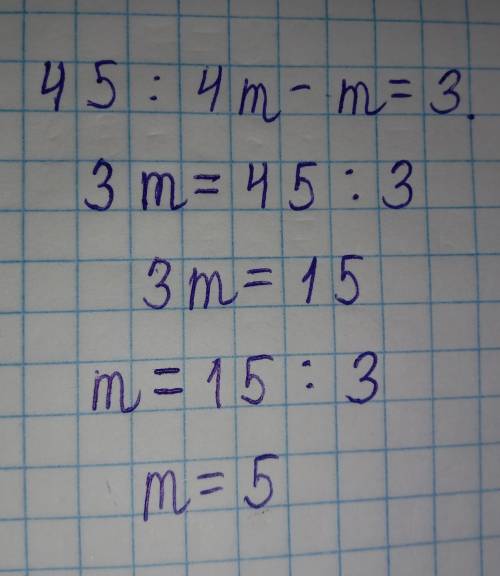 45 : 4m - m = 3.
3m = 45 : 3
3m = 15
m = 15 : 3
m = 5